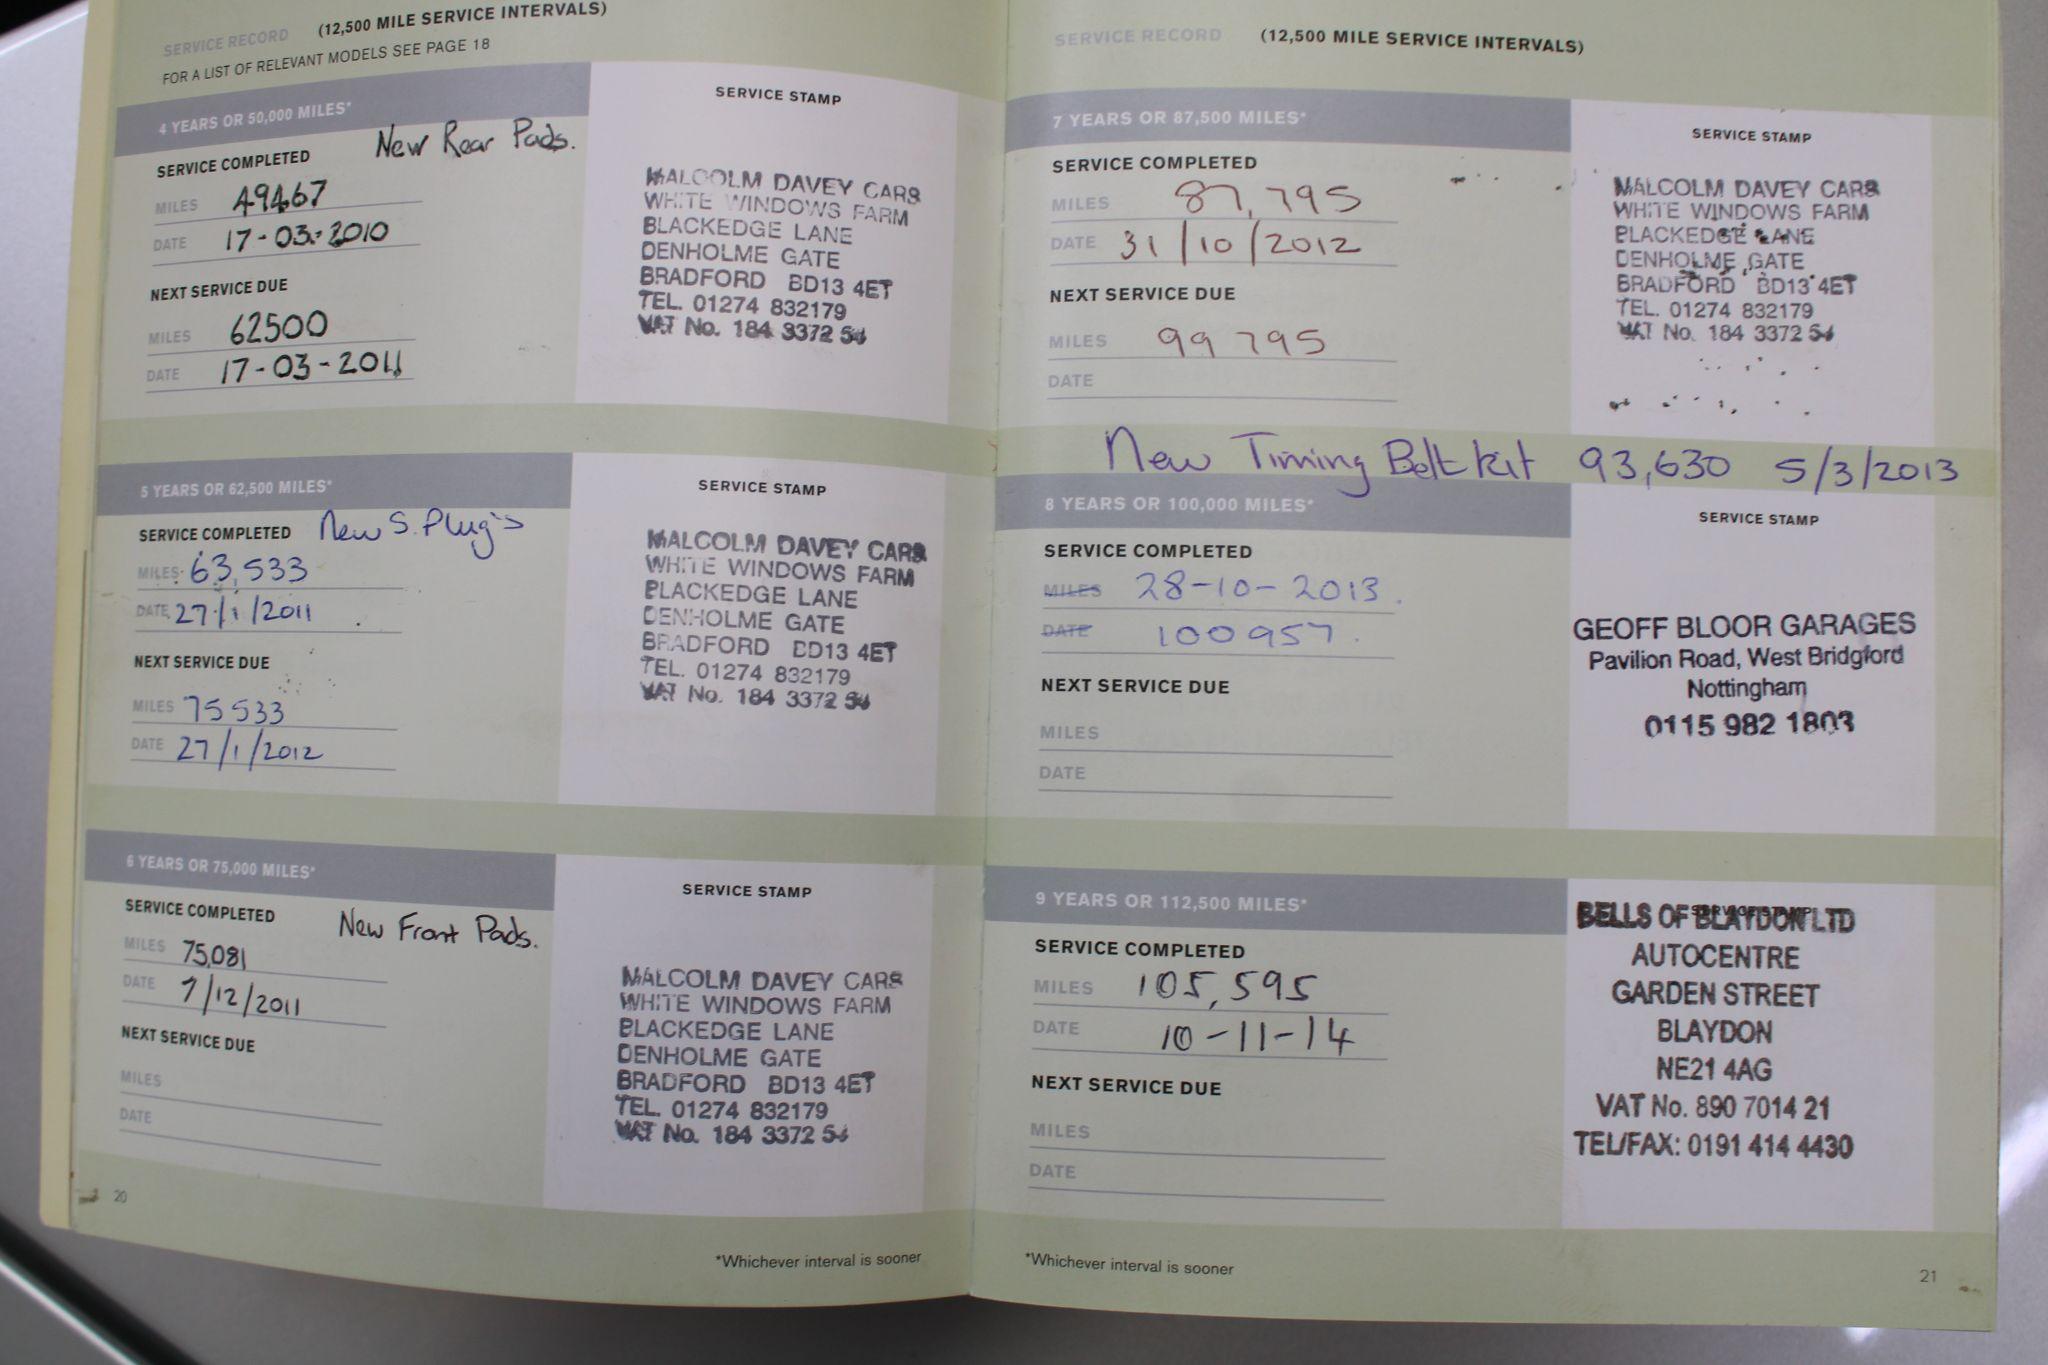 SERVICE RECORD (12,500 MILE SERVICE INTERVALS)
FOR A LIST OF RELEVANT MODELS SEE PAGE 18
4 YEARS OR 50,000 MILES*
New Rear Pads.
SERVICE COMPLETED
MILES 49467
DATE 17-03-2010
NEXT SERVICE DUE
MILES 62500
DATE 17-03-2011
SERVICE STAMP
MALCOLM DAVEY CARS
WHITE WINDOWS FARM
BLACKEDGE LANE
DENHOLME GATE
BRADFORD BD13 4ET
TEL. 01274 832179
VAT No. 184 3372 54
5 YEARS OR 62,500 MILES*
SERVICE COMPLETED New S. Plug's
MILES 63,533
DATE 27/1/2011
NEXT SERVICE DUE
MILES 75533
DATE 27/1/2012
SERVICE STAMP
MALCOLM DAVEY CARS
WHITE WINDOWS FARM
BLACKEDGE LANE
DENHOLME GATE
BRADFORD BD13 4ET
TEL. 01274 832179
VAT No. 184 3372 54
6 YEARS OR 75,000 MILES*
SERVICE COMPLETED New Front Pads.
MILES 75,081
DATE 7/12/2011
NEXT SERVICE DUE
MILES
DATE
SERVICE STAMP
MALCOLM DAVEY CARS
WHITE WINDOWS FARM
BLACKEDGE LANE
DENHOLME GATE
BRADFORD BD13 4ET
TEL. 01274 832179
VAT No. 184 3372 54
20
*Whichever interval is sooner
SERVICE RECORD (12,500 MILE SERVICE INTERVALS)
7 YEARS OR 87,500 MILES*
SERVICE COMPLETED
MILES 87,795
DATE 31/10/2012
NEXT SERVICE DUE
MILES 99795
DATE
SERVICE STAMP
MALCOLM DAVEY CARS
WHITE WINDOWS FARM
BLACKEDGE LANE
DENHOLME GATE
BRADFORD BD13 4ET
TEL. 01274 832179
VAT No. 184 3372 54
New Timing Belt kit 93,630 5/3/2013
8 YEARS OR 100,000 MILES*
SERVICE COMPLETED
MILES 28-10-2013.
DATE 100957.
NEXT SERVICE DUE
MILES
DATE
SERVICE STAMP
GEOFF BLOOR GARAGES
Pavilion Road, West Bridgford
Nottingham
0115 982 1803
9 YEARS OR 112,500 MILES*
SERVICE COMPLETED
MILES 105,595
DATE 10-11-14
NEXT SERVICE DUE
MILES
DATE
SERVICE STAMP
BELLS OF BLAYDON LTD
AUTOCENTRE
GARDEN STREET
BLAYDON
NE21 4AG
VAT No. 890 7014 21
TEL/FAX: 0191 414 4430
*Whichever interval is sooner
21